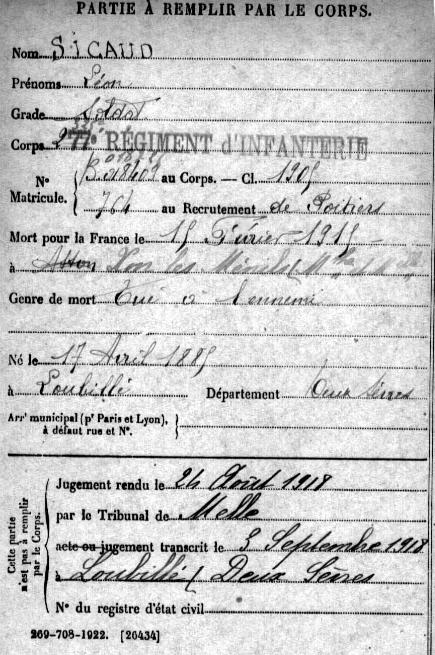 PARTIE À REMPLIR PAR LE CORPS.
Nom SICAUD
Prénoms Léon
Grade Soldat
Corps 277e RÉGIMENT d'INFANTERIE
N° Matricule. au Corps. — Cl. 1905
764 au Recrutement de Poitiers
Mort pour la France le 15 Février 1915
à
Genre de mort Tué à l'ennemi
Né le 17 Avril 1885
à Loubillé Département Deux Sèvres
Arrt municipal (pr Paris et Lyon),
à défaut rue et N°.
Cette partie n'est pas à remplir par le Corps.
Jugement rendu le 24 Août 1918
par le Tribunal de Melle
acte ou jugement transcrit le 5 Septembre 1918
à Loubillé (Deux Sèvres
N° du registre d'état civil
269-708-1922. [26434]